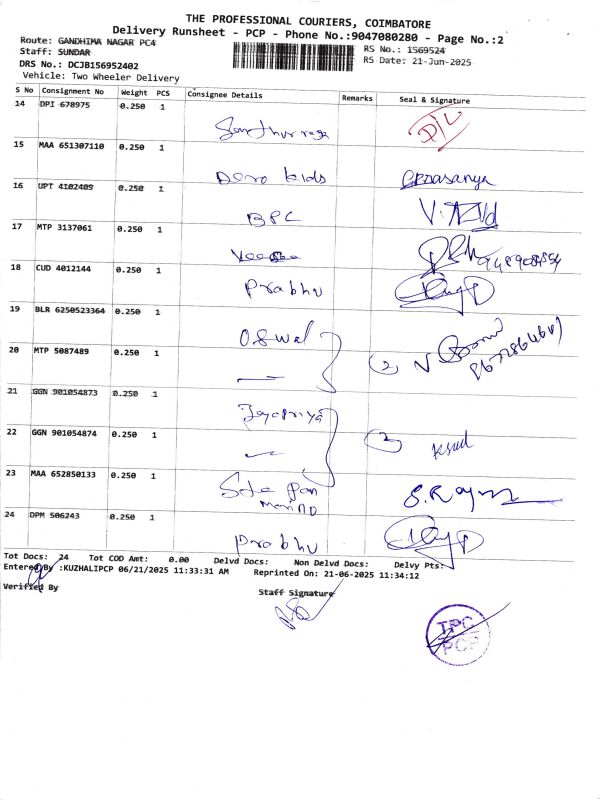 THE PROFESSIONAL COURIERS, COIMBATORE
Delivery Runsheet - PCP - Phone No.:9047080280 - Page No.:2
Route: GANDHIMA NAGAR PC4
RS No.: 1569524
Staff: SUNDAR
RS Date: 21-Jun-2025
DRS No.: DCJB156952402
Vehicle: Two Wheeler Delivery
S No Consignment No Weight PCS Consignee Details Remarks Seal & Signature
14 DPI 678975 0.250 1
D/L
15 MAA 651307110 0.250 1
Dero kids
16 UPT 4102409 0.250 1
BPC
17 MTP 3137061 0.250 1
18 CUD 4012144 0.250 1
Prabhu
19 BLR 6250523364 0.250 1
Oswal
20 MTP 5087489 0.250 1
2
21 GGN 901054873 0.250 1
Jayapriya
22 GGN 901054874 0.250 1
2
23 MAA 652850133 0.250 1
24 DPM 506243 0.250 1
Prabhu
Tot Docs: 24 Tot COD Amt: 0.00 Delvd Docs: Non Delvd Docs: Delvy Pts:
Entered By :KUZHALIPCP 06/21/2025 11:33:31 AM Reprinted On: 21-06-2025 11:34:12
Verified By
Staff Signature
TPC
PCP